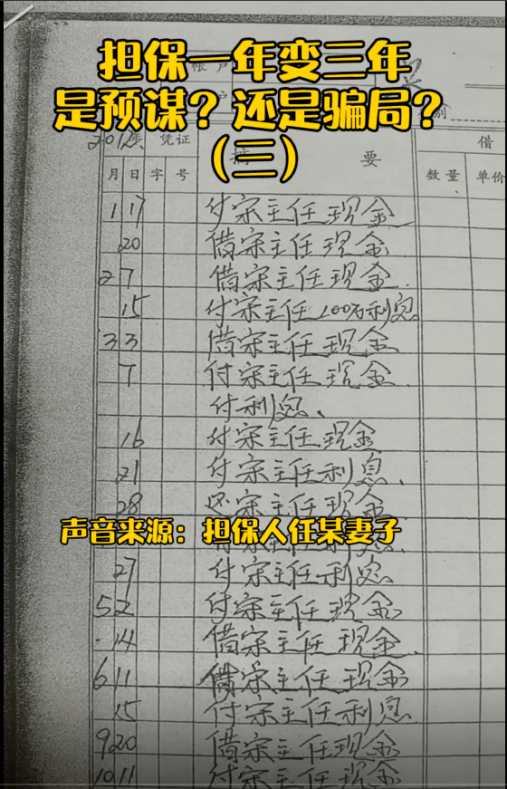 担保一年变三年
是预谋？还是骗局？
（三）
帐 户
别
2012年 凭证 摘要 借
月 日 字 号 数量 单价
1 17 付宋主任现金
20 借宋主任现金
2 7 借宋主任现金
15 付宋主任100万利息
3 3 借宋主任现金
7 付宋主任现金
付利息、
16 付宋主任现金
21 付宋主任利息
28 宋主任现金
声音来源：担保人任某妻子
27 付宋主任利息
5 2 付宋主任现金
14 借宋主任现金
6 11 借宋主任现金
15 付宋主任利息
9 20 借宋主任现金
10 11 付宋主任现金